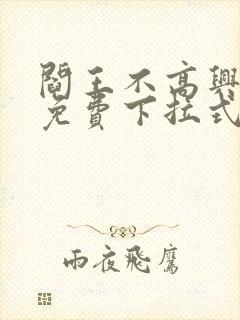 閻王不高興
免費下拉式
雨夜飛鷹